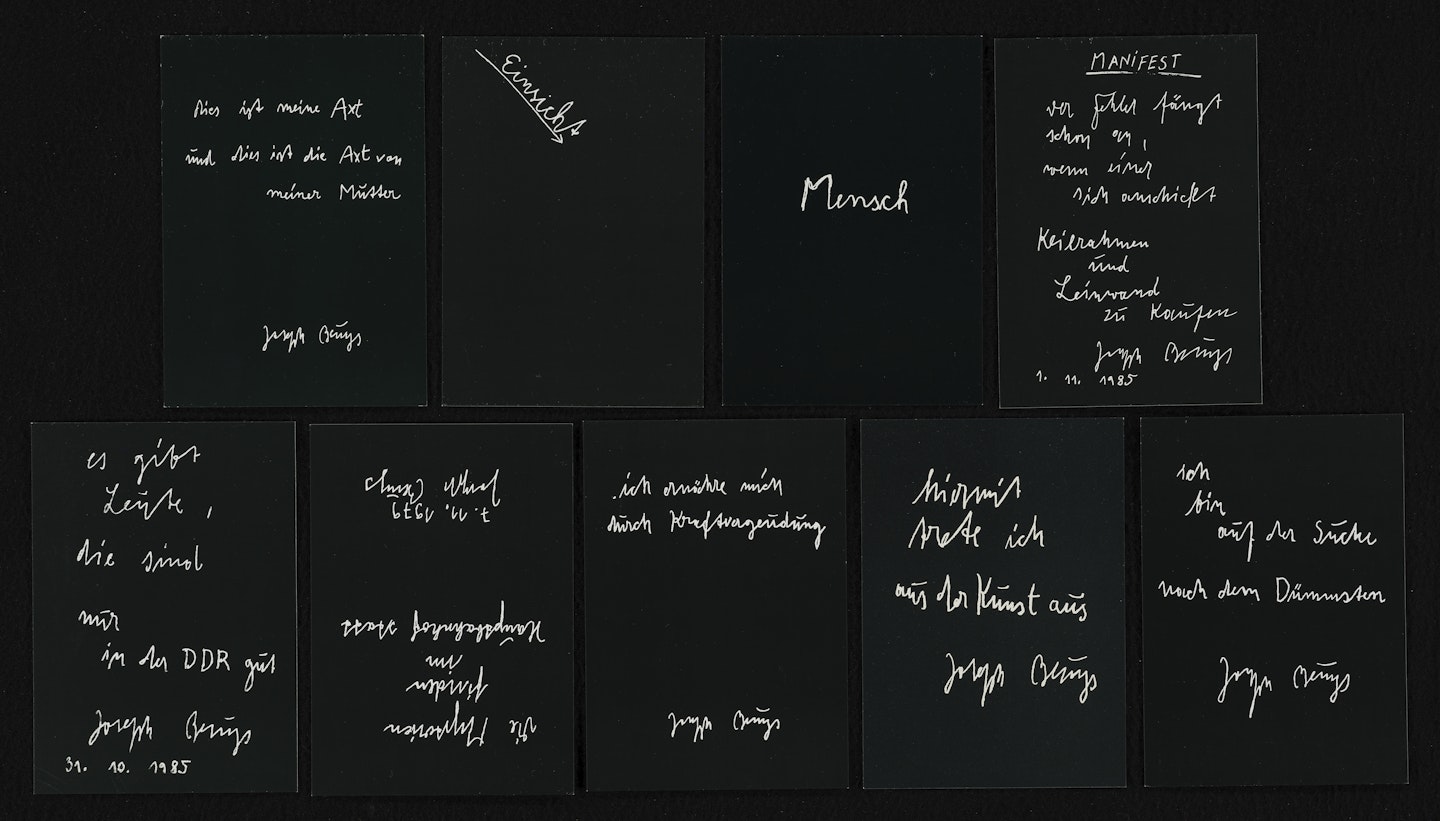 dies ist meine Axt
und dies ist die Axt von
meiner Mutter
Joseph Beuys
Einsicht
Mensch
MANIFEST
der Fehler fängt
schon an,
wenn einer
sich anschickt
Keilrahmen
und
Leinwand
zu kaufen
Joseph Beuys
1. 11. 1985
es gibt
Leute,
die sind
nur
in der DDR gut
Joseph Beuys
31. 10. 1985
die Mysterien
finden
im
Hauptbahnhof statt
Joseph Beuys
7. 11. 1979
ich ernähre mich
durch Kraftvergeudung
Joseph Beuys
hiermit
trete ich
aus der Kunst aus
Joseph Beuys
ich
bin
auf der Suche
nach dem Dümmsten
Joseph Beuys